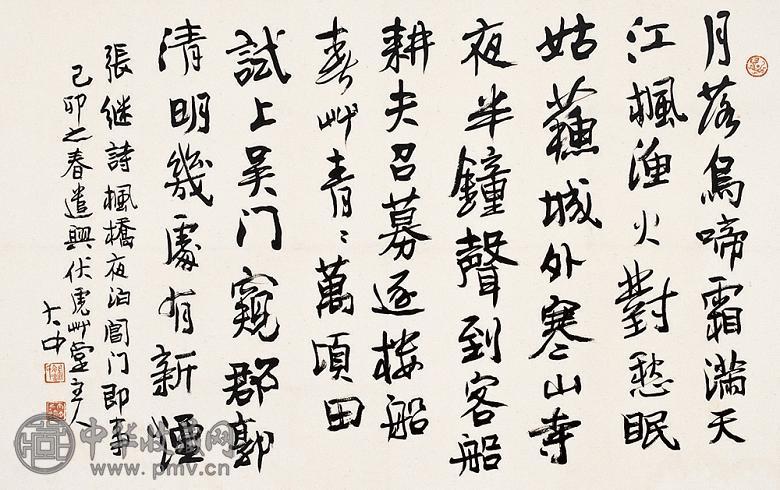 月落烏啼霜满天
江楓渔火對愁眠
姑蘓城外寒山寺
夜半鐘聲到客船
耕夫召募逐楼船
春艸青〻萬頃田
試上吴门窺郡郭
清明幾處有新煙
張継詩楓橋夜泊閶门即事
己卯之春遣興伏虎艸堂主人
大中
中华收藏网
www.pmv.cn